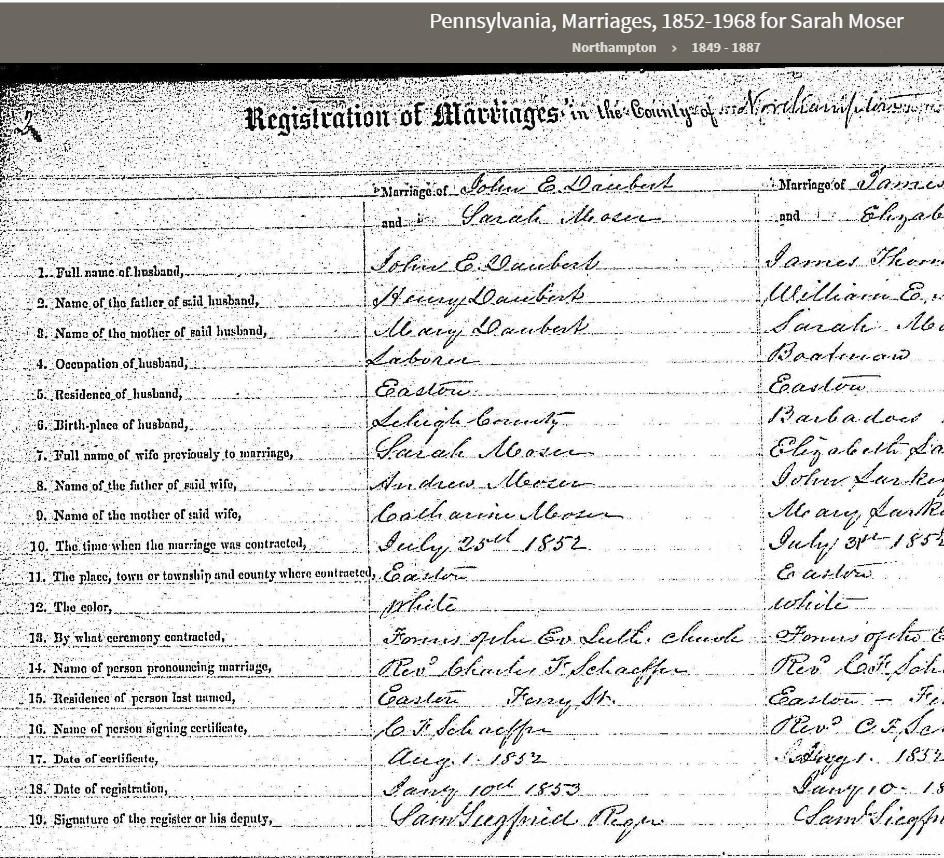 Pennsylvania, Marriages, 1852-1968 for Sarah Moser
Northampton › 1849 - 1887
2
Registration of Marriages in the County of Northampton
Marriage of John E. Daubert Marriage of James
and Sarah Moser and Elizab
1. Full name of husband, John E. Daubert James Thom
2. Name of the father of said husband, Henry Daubert William E.
3. Name of the mother of said husband, Mary Daubert Sarah
4. Occupation of husband, Laborer Boatman
5. Residence of husband, Easton Easton
6. Birth-place of husband, Lehigh County Barbadoes
7. Full name of wife previously to marriage, Sarah Moser Elizabeth
8. Name of the father of said wife, Andrew Moser John
9. Name of the mother of said wife, Catharine Moser Mary
10. The time when the marriage was contracted, July 25th 1852 July 31st 1852
11. The place, town or township and county where contracted, Easton Easton
12. The color, White White
13. By what ceremony contracted, Forms of the Ev. Luth. church Forms of the E
14. Name of person pronouncing marriage, Revd Charles F. Schaeffer Revd C. F. Sch
15. Residence of person last named, Easton Ferry St. Easton – Fe
16. Name of person signing certificate, C. F. Schaeffer Revd C. F. Sc
17. Date of certificate, Aug. 1. 1852 Aug 1. 1852
18. Date of registration, Jany 10th 1853 Jany 10 - 18
19. Signature of the register or his deputy, Saml Siegfried Regr Saml Siegfr